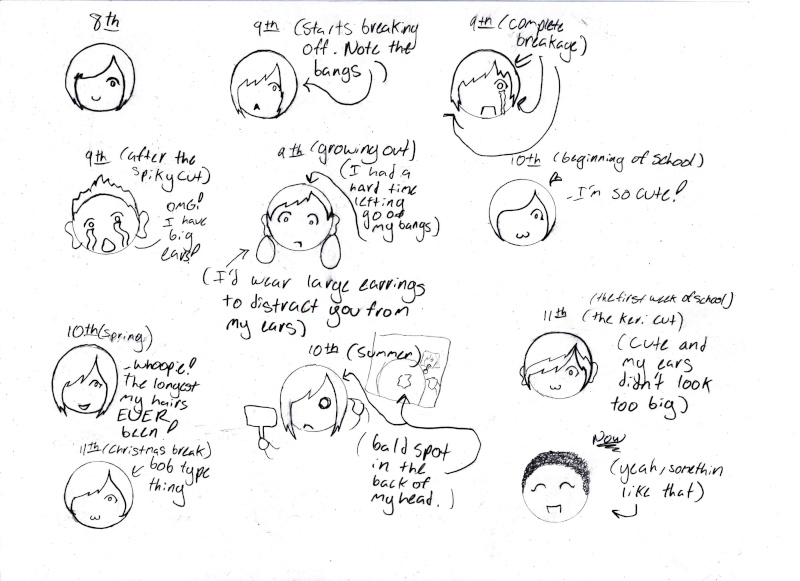 8th
9th (starts breaking
off. Note the
bangs)
9th (complete
breakage)
9th (after the
spiky cut)
OMG!
I have
big
ears!
9th (growing out)
(I had a
hard time
letting
go of
my bangs)
(I'd wear large earrings
to distract you from
my ears)
10th (beginning of school)
- I'm so cute!
10th (spring)
- whoopie!
The longest
my hairs
EVER
been!
10th (summer)
(bald spot
in the
back of
my head.)
(the first week of school)
11th (the keri cut)
(cute and
my ears
didn't look
too big)
11th (christmas break)
bob type
thing
Now
(yeah, somethin
like that)